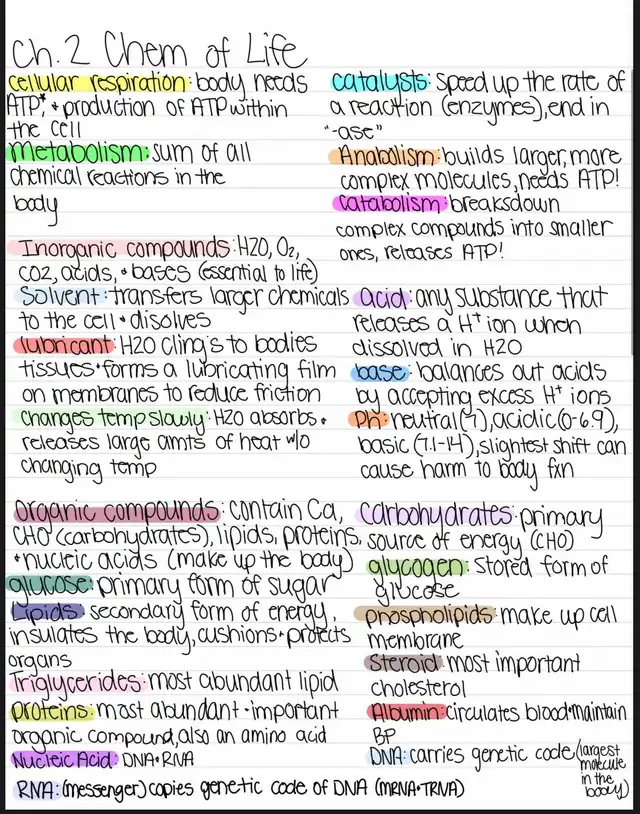 Ch. 2 Chem of Life
cellular respiration: body needs
ATP,* + production of ATP within
the cell
Metabolism: sum of all
chemical reactions in the
body
catalysts: speed up the rate of
a reaction (enzymes), end in
"-ase"
Anabolism: builds larger, more
complex molecules, needs ATP!
Catabolism: breaksdown
complex compounds into smaller
ones, releases ATP!
Inorganic compounds: H2O, O2,
CO2, acids, + bases (essential to life)
Solvent: transfers larger chemicals
to the cell + disolves
lubricant: H2O cling's to bodies
tissues + forms a lubricating film
on membranes to reduce friction
changes temp slowly: H2O absorbs +
releases large amts of heat w/o
changing temp
acid: any substance that
releases a H+ ion when
dissolved in H2O
base: balances out acids
by accepting excess H+ ions
Ph: neutral (7), acidic (0-6.9),
basic (7.1-14), slightest shift can
cause harm to body fxn
organic compounds: contain Ca,
CHO (carbohydrates), lipids, proteins,
+ nucleic acids (make up the body)
glucose: primary form of sugar
Lipids: secondary form of energy,
insulates the body, cushions + protects
organs
Triglycerides: most abundant lipid
proteins: most abundant + important
organic compound, also an amino acid
Nucleic Acid: DNA + RNA
carbohydrates: primary
source of energy (CHO)
glycogen: stored form of
glucose
phospholipids: make up cell
membrane
Steroid: most important
cholesterol
Albumin: circulates blood + maintain
BP
DNA: carries genetic code (largest
molecule
in the
body)
RNA: (messenger) copies genetic code of DNA (mRNA + TRNA)